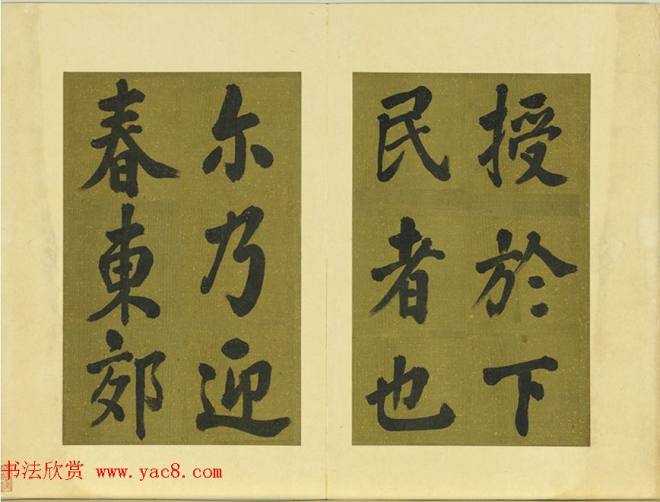 授於下
民者也
尓乃迎
春東郊
书法欣赏 www.yac8.com